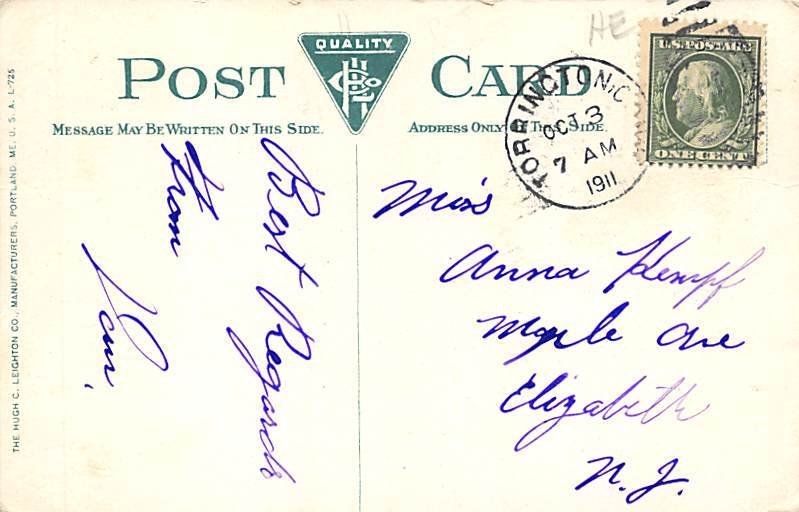 HE
QUALITY
POST CARD
MESSAGE MAY BE WRITTEN ON THIS SIDE.
ADDRESS ONLY ON THIS SIDE.
TORRINGTON, C
OCT 3
7 AM
1911
U.S. POSTAGE
ONE CENT
Best Regards
From
Miss
Anna Kempf
Maple Ave
Elizabeth
N. J.
THE HUGH C. LEIGHTON CO., MANUFACTURERS, PORTLAND, ME. U. S. A. L-725